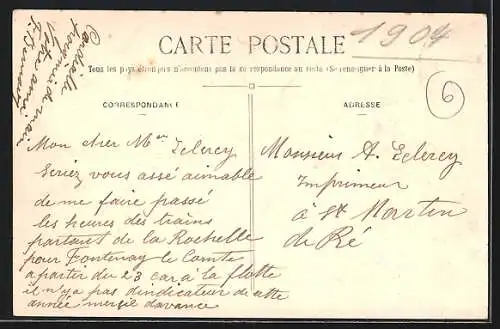 1904
CARTE POSTALE
Tous les pays étrangers n'acceptent pas la correspondance au recto (Se renseigner à la Poste)
6
CORRESPONDANCE
ADRESSE
Cordiale
poignée de main
Votre ami
Mon cher Mr Leclercy
Seriez vous assé aimable
de me faire passé
les heures des trains
partant de la Rochelle
pour Fontenay le Comte
a partir du 23 car à la flotte
il n'y a pas d'indicateur de cette
année mercie davance
Monsieur A. Leclercy
Imprimeur
à St Martin
de Ré